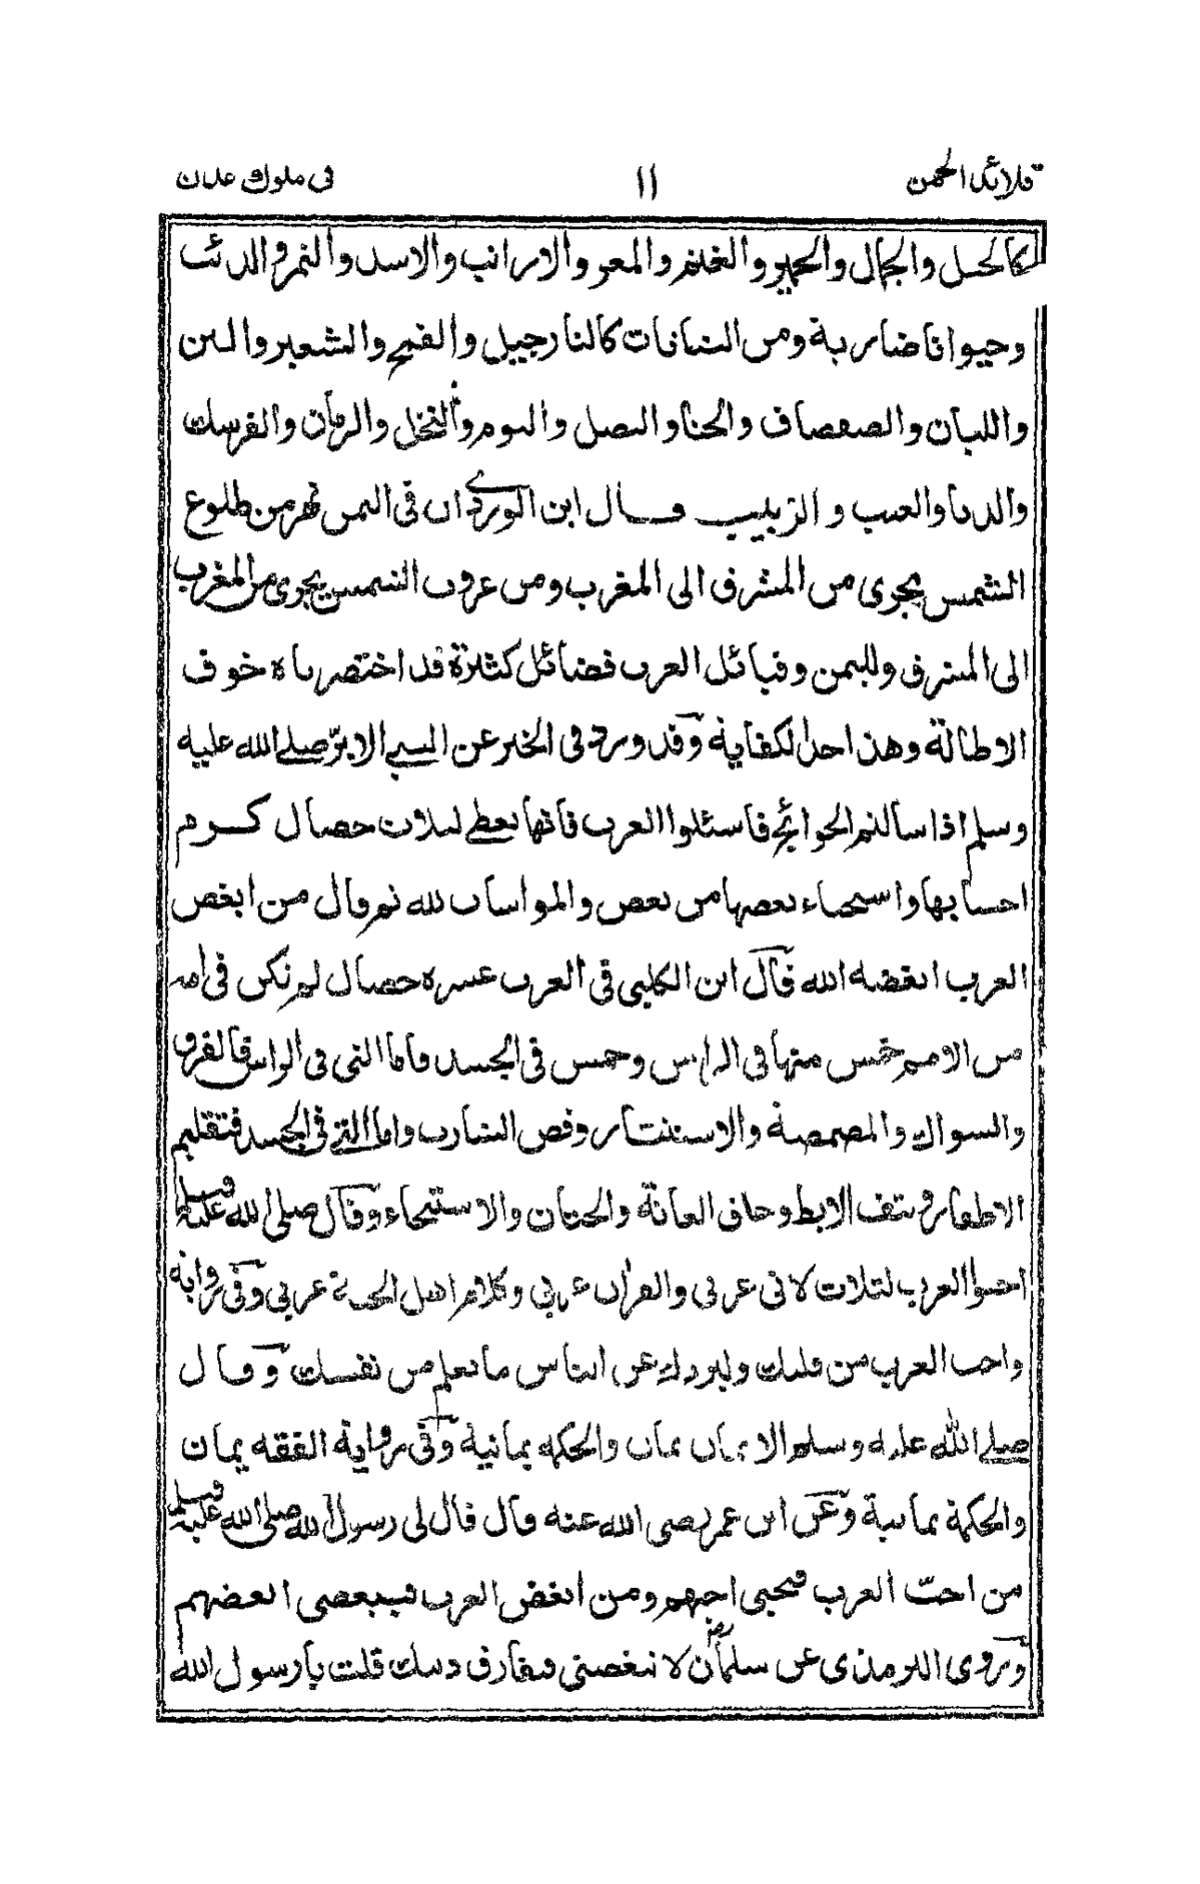 قلائد الجمن ١١ فى ملوك عدن
كالخيل والجمال والحمير والغنم والمعز والارانب والاسد والنمر والذئب
وحيوانا ضاربة ومن النباتات كالنارجيل والقمح والشعير والبن
واللبان والصفصاف والحنا والبصل والثوم والنخل والرمان والفرسك
والدبا والعنب والزبيب قال ابن الوردى ان فى اليمن نهر من طلوع
الشمس يجرى من المشرق الى المغرب ومن غروب الشمس يجرى من المغرب
الى المشرق ولليمن وقبائل العرب فضائل كثيرة قد اختصرناه خوف
الاطالة وهذا حد الكفاية وقد ورد فى الخبر عن النبى الابر صلى الله عليه
وسلم اذا سالتم الحوائج فاسئلوا العرب فانها تعطى لثلاث خصال كرم
احسابها واستحياء بعضها من بعض والمواساة لله ثم قال من ابغض
العرب ابغضه الله قال ابن الكلبى فى العرب عشرة خصال لم تكن فى امة
من الامم خمس منها فى الراس وخمس فى الجسد فاما التى فى الراس فالفرق
والسواك والمصمصة والاستنثار وقص الشارب واما التى فى الجسد فتقليم
الاظفار ونتف الابط وحلق العانة والختان والاستنجاء وقال صلى الله عليه وسلم
احبوا العرب لثلاث لانى عربى والقران عربى وكلام اهل الجنة عربى وفى رواية
واحب العرب من قلبك وليردك عن الناس ما تعلم من نفسك وقال
صلى الله عليه وسلم الايمان يمان والحكمة يمانية وفى رواية الفقه يمان
والحكمة يمانية وعن ابن عمر رضى الله عنه قال قال لى رسول الله صلى الله عليه وسلم
من احب العرب فبحبى احبهم ومن ابغض العرب فببغضى ابغضهم
وروى الترمذى عن سلمان رض لا تبغضنى فتفارق دينك قلت يا رسول الله